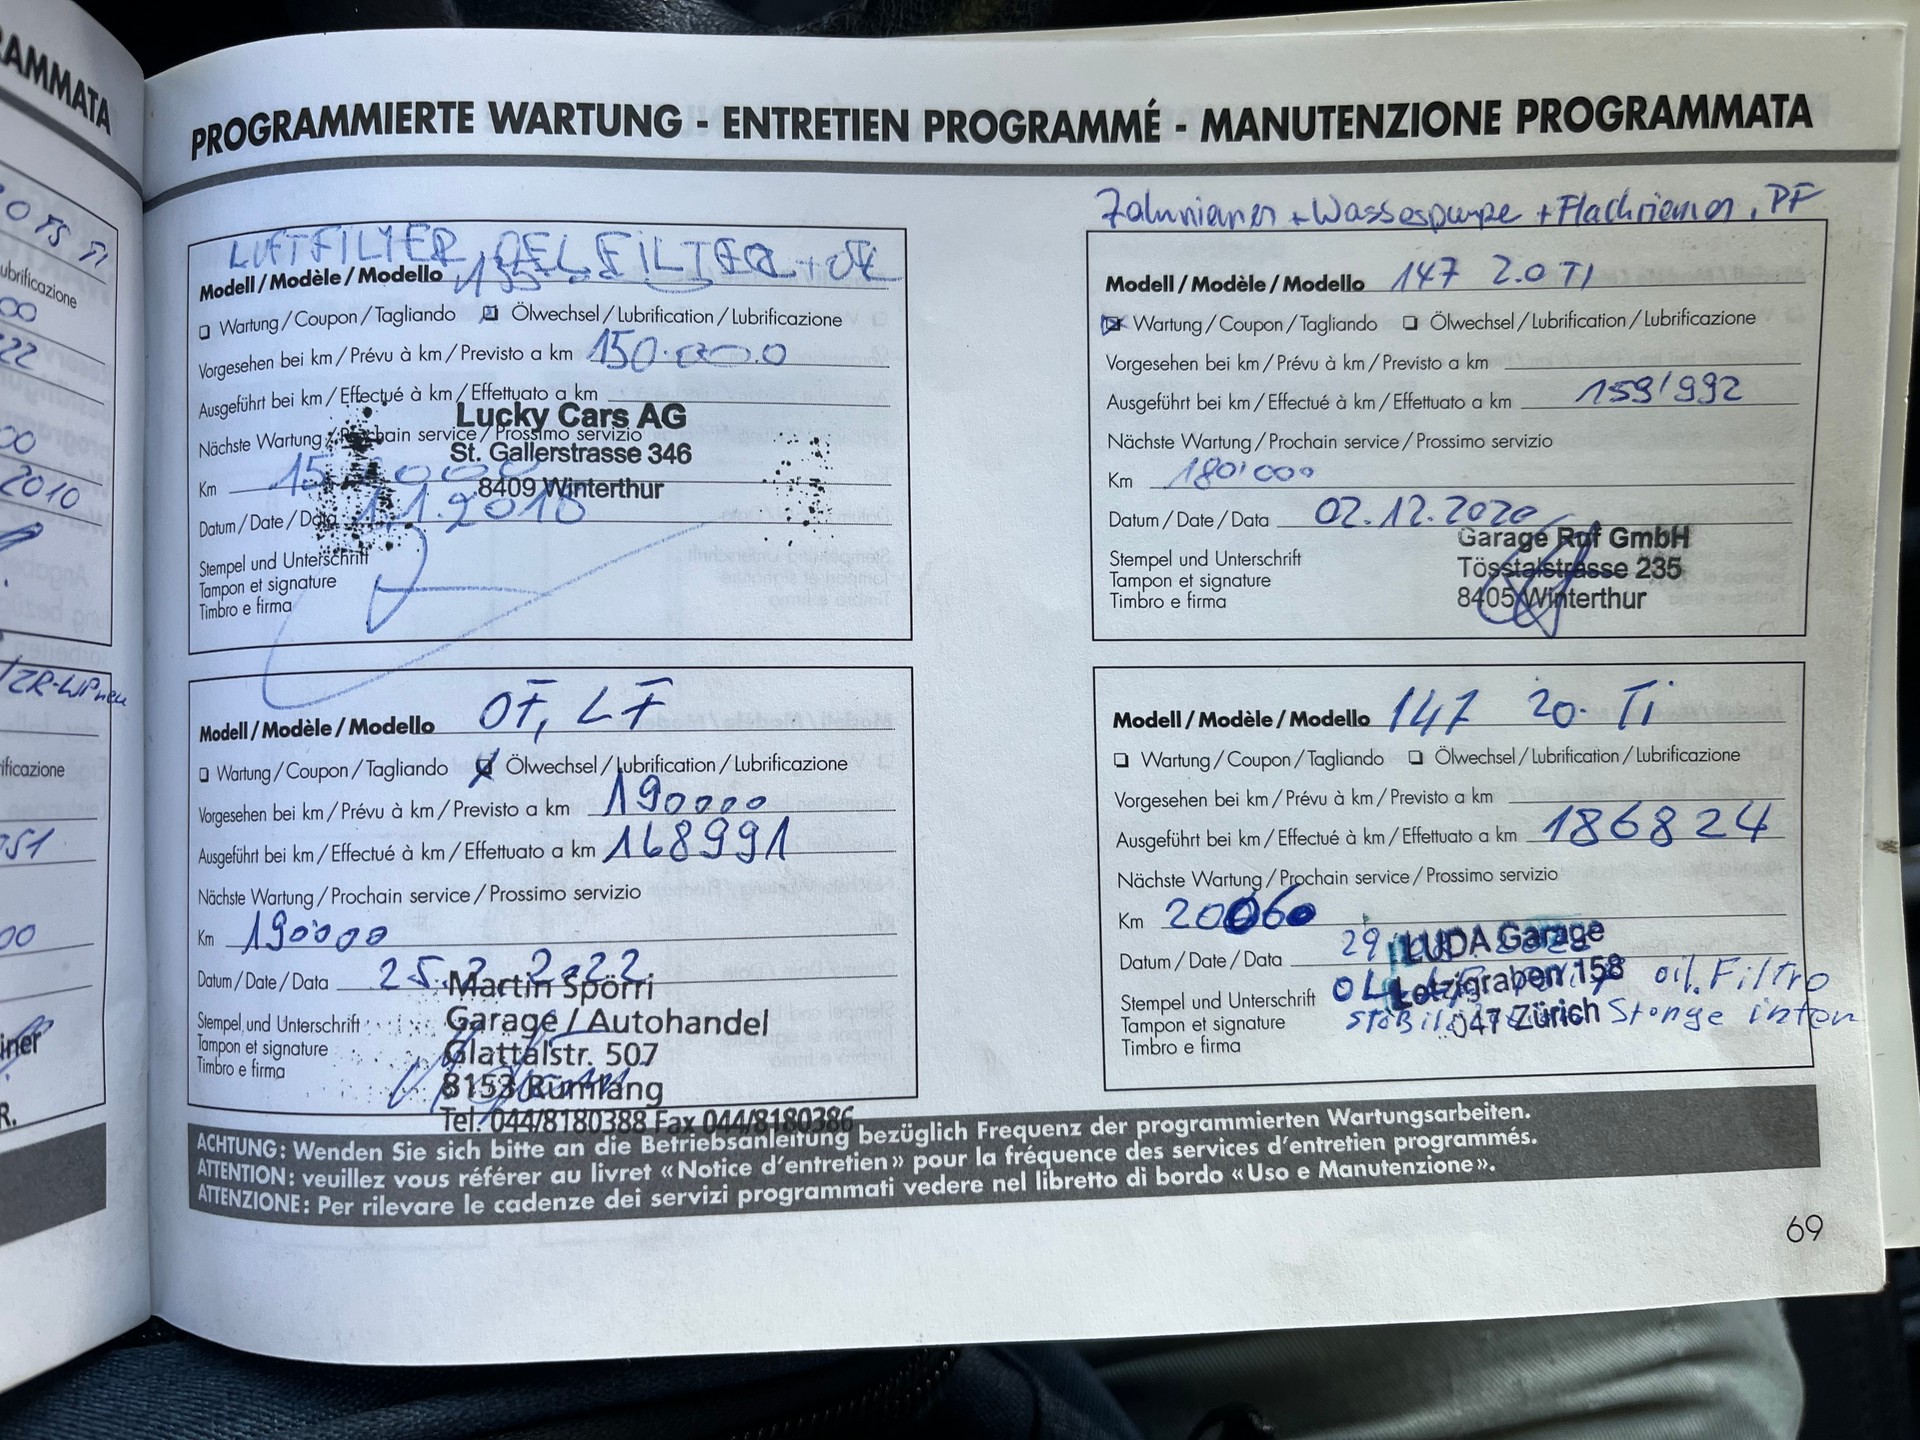 RAMMATA
PROGRAMMIERTE WARTUNG - ENTRETIEN PROGRAMMÉ - MANUTENZIONE PROGRAMMATA
LUFTFILTER OELFILTER + OEL
Modell / Modèle / Modello
Wartung / Coupon / Tagliando Ölwechsel / Lubrification / Lubrificazione
Vorgesehen bei km / Prévu à km / Previsto a km 150.000
Ausgeführt bei km / Effectué à km / Effettuato a km
Lucky Cars AG
Nächste Wartung / Prochain service / Prossimo servizio
St. Gallerstrasse 346
Km
8409 Winterthur
Datum / Date / Data
Stempel und Unterschrift
Tampon et signature
Timbro e firma
Zahnriemen + Wasserpumpe + Flachriemen, PF
Modell / Modèle / Modello 147 2.0 TI
Wartung / Coupon / Tagliando Ölwechsel / Lubrification / Lubrificazione
Vorgesehen bei km / Prévu à km / Previsto a km
Ausgeführt bei km / Effectué à km / Effettuato a km 159'992
Nächste Wartung / Prochain service / Prossimo servizio
Km 180'000
Datum / Date / Data 02.12.2020
Stempel und Unterschrift
Tampon et signature
Timbro e firma
Garage Ruf GmbH
Tösstalstrasse 235
8405 Winterthur
Modell / Modèle / Modello OF, LF
Wartung / Coupon / Tagliando Ölwechsel / Lubrification / Lubrificazione
Vorgesehen bei km / Prévu à km / Previsto a km 190000
Ausgeführt bei km / Effectué à km / Effettuato a km 168991
Nächste Wartung / Prochain service / Prossimo servizio
Km 190'000
Datum / Date / Data 25.2.2022
Stempel und Unterschrift
Tampon et signature
Timbro e firma
Martin Spörri
Garage / Autohandel
Glattalstr. 507
8153 Rümlang
Tel. 044/8180388 Fax 044/8180386
Modell / Modèle / Modello 147 20. Ti
Wartung / Coupon / Tagliando Ölwechsel / Lubrification / Lubrificazione
Vorgesehen bei km / Prévu à km / Previsto a km
Ausgeführt bei km / Effectué à km / Effettuato a km 186824
Nächste Wartung / Prochain service / Prossimo servizio
Km
Datum / Date / Data 29
Stempel und Unterschrift
Tampon et signature
Timbro e firma
LUDA Garage
Letzigraben 158
047 Zürich
oil. Filtro
Stange
ACHTUNG: Wenden Sie sich bitte an die Betriebsanleitung bezüglich Frequenz der programmierten Wartungsarbeiten.
ATTENTION: veuillez vous référer au livret «Notice d'entretien» pour la fréquence des services d'entretien programmés.
ATTENZIONE: Per rilevare le cadenze dei servizi programmati vedere nel libretto di bordo «Uso e Manutenzione».
69